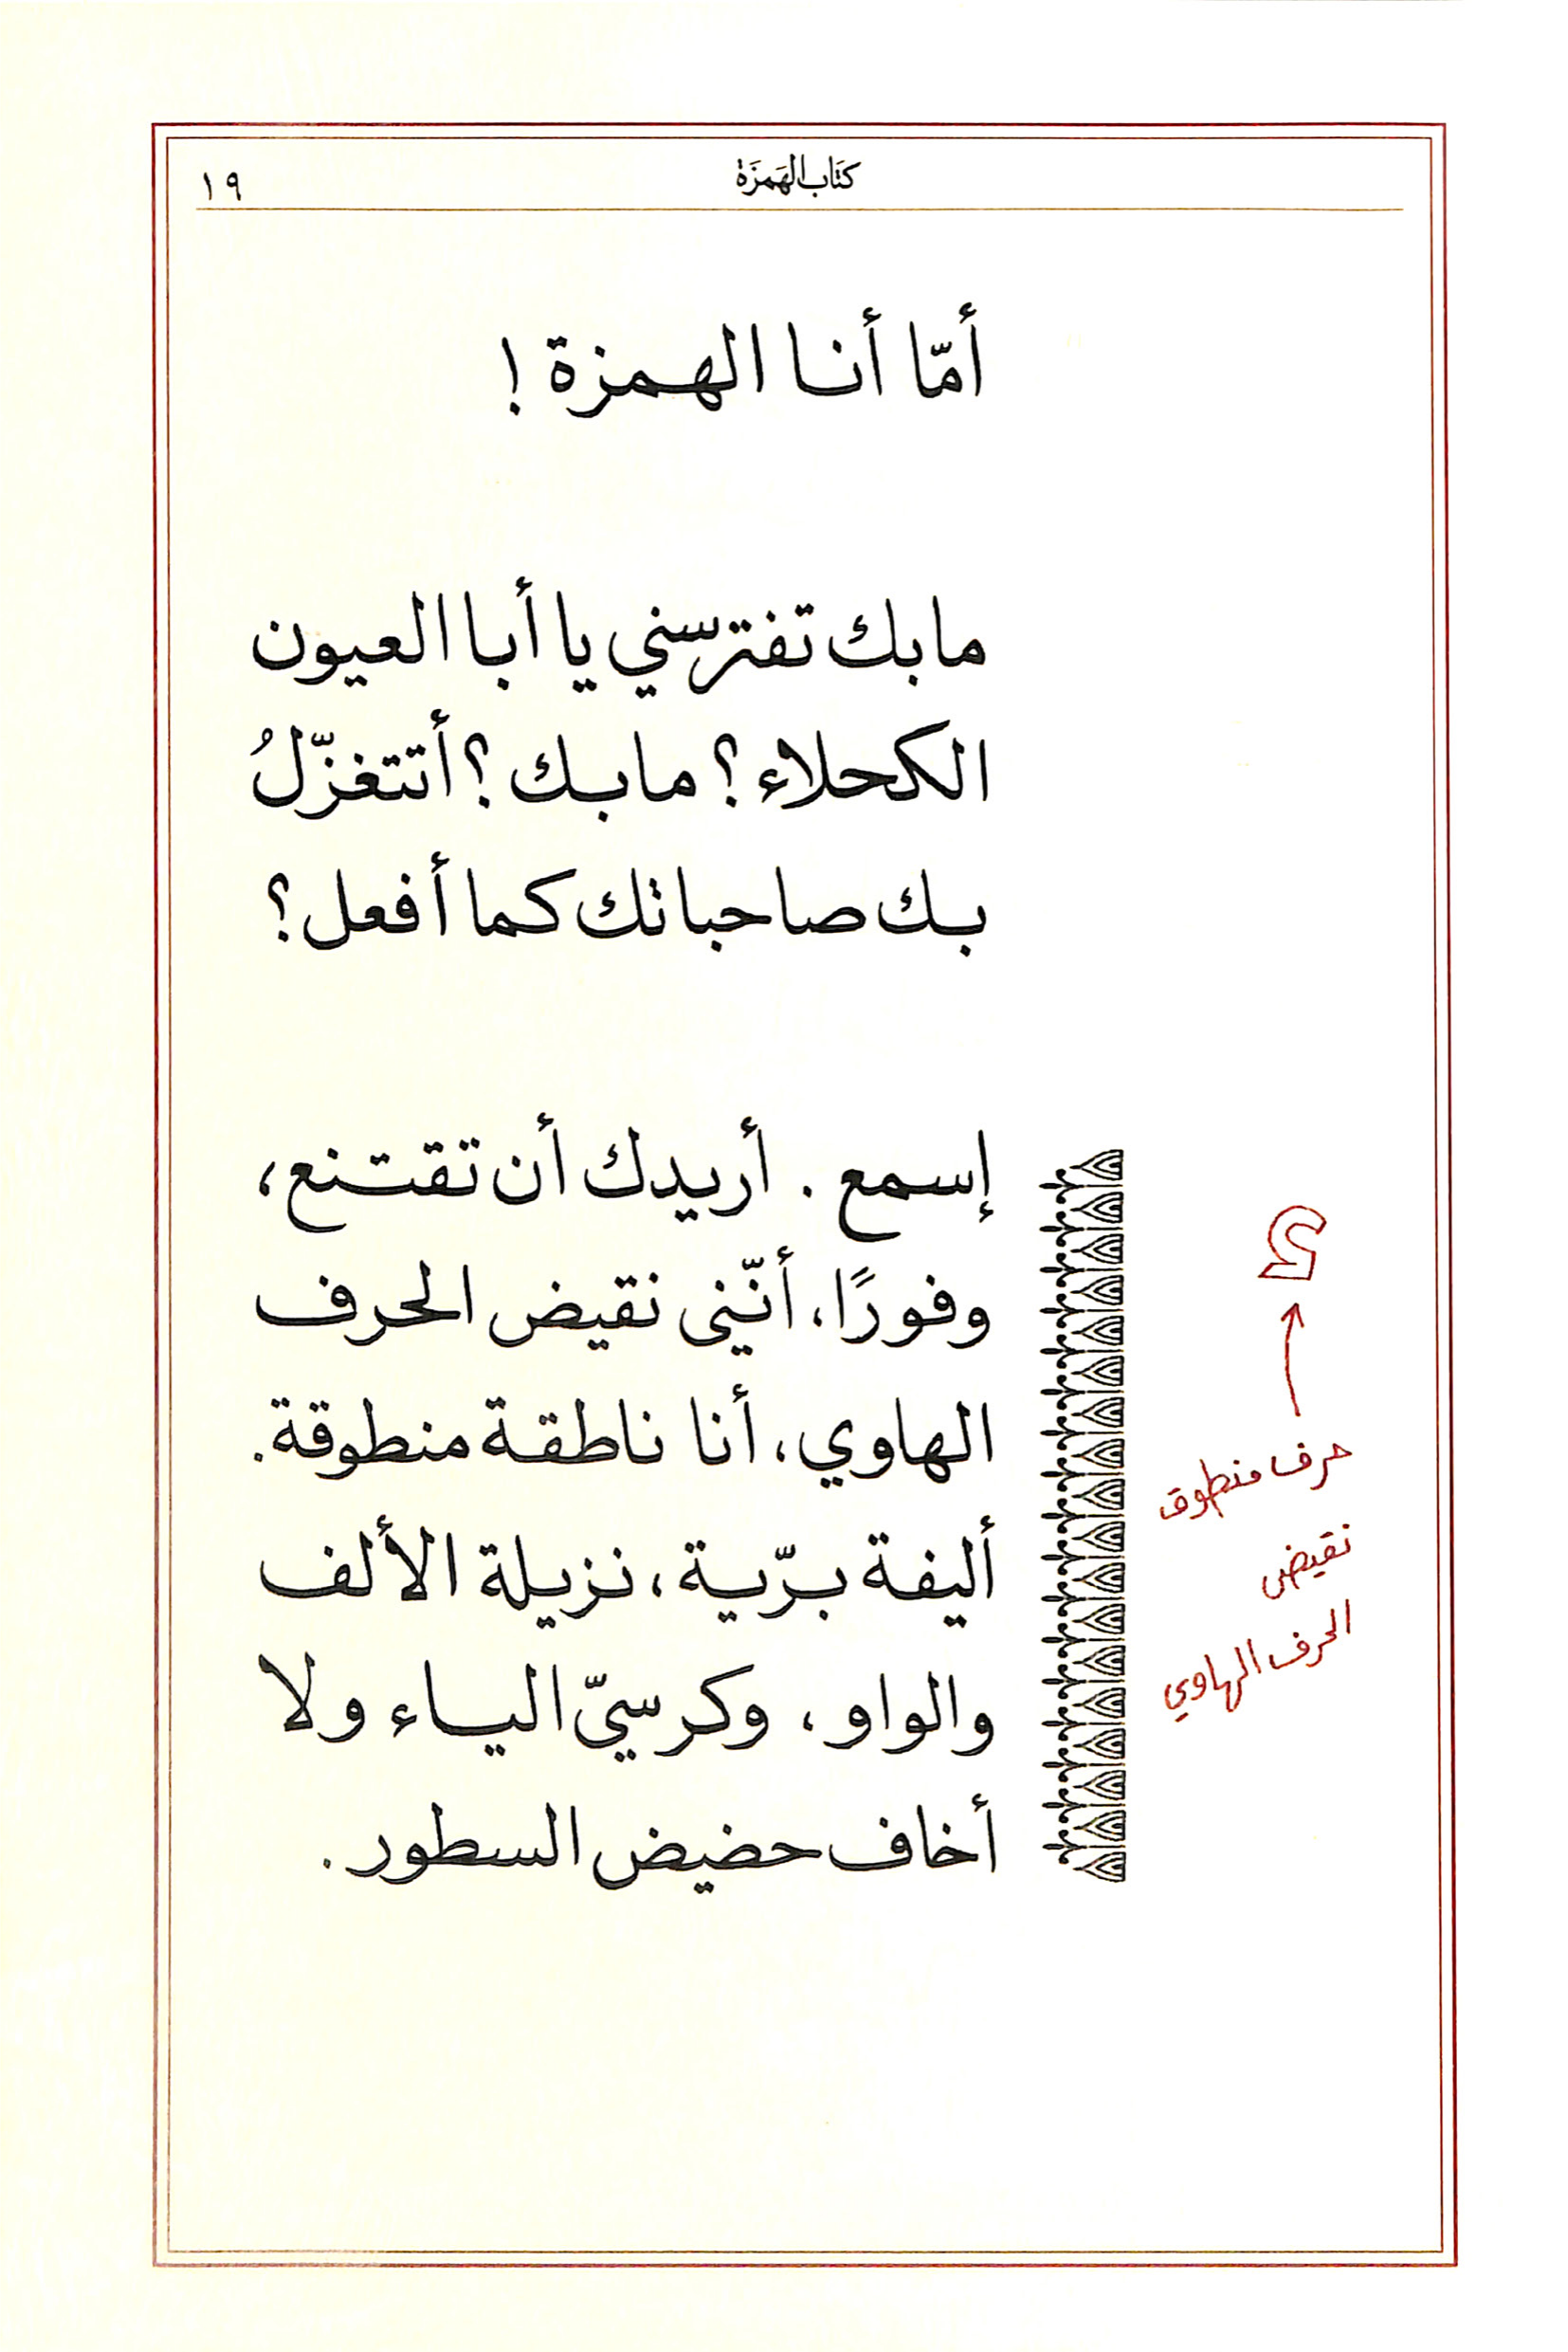 كتَاب الهَمزَة
١٩
أمّا أنا الهمزة !
ما بك تفترسني يا أبا العيون
الكحلاء ؟ ما بك ؟ أتتغزّلُ
بك صاحباتك كما أفعل ؟
إسمع . أريدك أن تقتنع ،
وفورًا ، أنّني نقيض الحرف
الهاوي ، أنا ناطقة منطوقة .
أليفة برّية ، نزيلة الألف
والواو ، وكرسيّ الياء ولا
أخاف حضيض السطور .
ء
حرف منطوق
نقيض
الحرف الهاوي